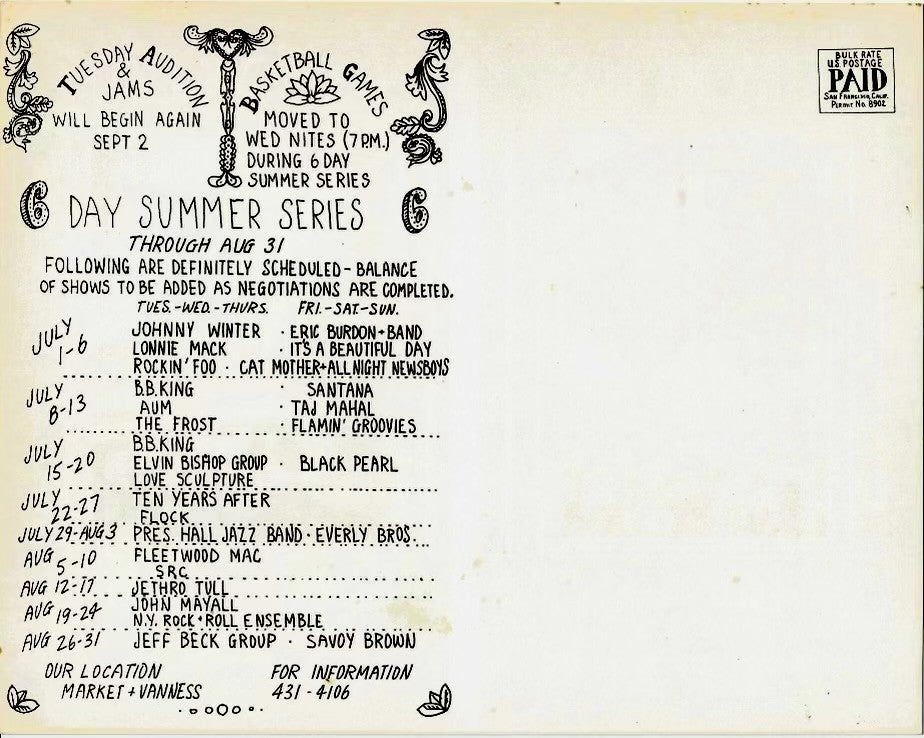 TUESDAY AUDITION
&
JAMS
WILL BEGIN AGAIN
SEPT 2
BASKETBALL GAMES
MOVED TO
WED NITES (7 P.M.)
DURING 6 DAY
SUMMER SERIES
BULK RATE
U.S. POSTAGE
PAID
SAN FRANCISCO, CALIF.
PERMIT No. 8902
6 DAY SUMMER SERIES 6
THROUGH AUG 31
FOLLOWING ARE DEFINITELY SCHEDULED - BALANCE
OF SHOWS TO BE ADDED AS NEGOTIATIONS ARE COMPLETED.
TUES.-WED.-THURS. FRI.-SAT.-SUN.
JULY 1-6 JOHNNY WINTER · ERIC BURDON + BAND
LONNIE MACK · IT'S A BEAUTIFUL DAY
ROCKIN' FOO · CAT MOTHER + ALL NIGHT NEWSBOYS
JULY 8-13 B.B. KING · SANTANA
AUM · TAJ MAHAL
THE FROST · FLAMIN' GROOVIES
JULY 15-20 B.B. KING
ELVIN BISHOP GROUP · BLACK PEARL
LOVE SCULPTURE
JULY 22-27 TEN YEARS AFTER
FLOCK
JULY 29-AUG 3 PRES. HALL JAZZ BAND · EVERLY BROS.
AUG 5-10 FLEETWOOD MAC
SRC
AUG 12-17 JETHRO TULL
AUG 19-24 JOHN MAYALL
N.Y. ROCK + ROLL ENSEMBLE
AUG 26-31 JEFF BECK GROUP · SAVOY BROWN
OUR LOCATION
MARKET + VANNESS
FOR INFORMATION
431-4106